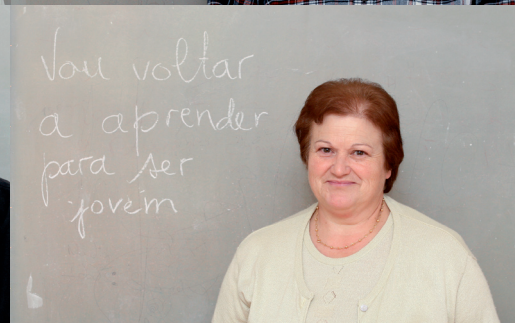 Vou voltar
a aprender
para ser
jovem